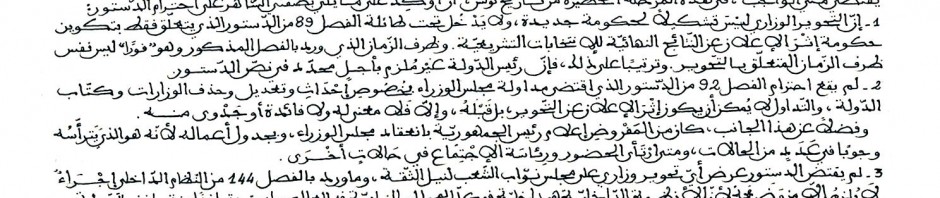 يقتضي مني الواجب، في هذه المرحلة الخطيرة من تاريخ تونس أن أؤكد على الساهر على احترام الدستور:
1 - إنّ التحوير الوزاري ليس تشكيلا لحكومة جديدة، ولا يدخل تحت طائلة الفصل 89 من الدستور الذي يتعلق فقط بتكوين
حكومة إثر الإعلان عن النتائج النهائية للإنتخابات التشريعية. وظرف الزمان الذي ورد بالفصل المذكور وهو "فورًا" ليس نفس
ظرف الزمان المتعلق بالتحوير. وترتيبا على ذلك، فإنّ رئيس الدولة غير ملزم بأجل محدّد في نصّ الدستور.
2 - لم يقع احترام الفصل 92 من الدستور الذي اقتضى مداولة مجلس الوزراء بخصوص إحداث وتعديل وحذف الوزارات وكتّاب
الدولة، والتداول لا يمكن أن يكون إثر الإعلان عن التحوير، بل قبله، وإلاّ فلا معنى له ولا فائدة أو جدوى منه.
وفضلا عن هذا الجانب، كان من المفروض إعلام رئيس الجمهورية بانعقاد مجلس الوزراء، وبجدول أعماله لأنه هو الذي يترأّسه
وجوبا في عديد من الحالات، ومتى ارتأى الحضور ورئاسة الإجتماع في حالات أخرى.
3 - لم يقتض الدستور عرض أي تحوير وزاري على مجلس نواب الشعب لنيل الثقة، وما ورد بالفصل 144 من النظام الداخلي إجراءً